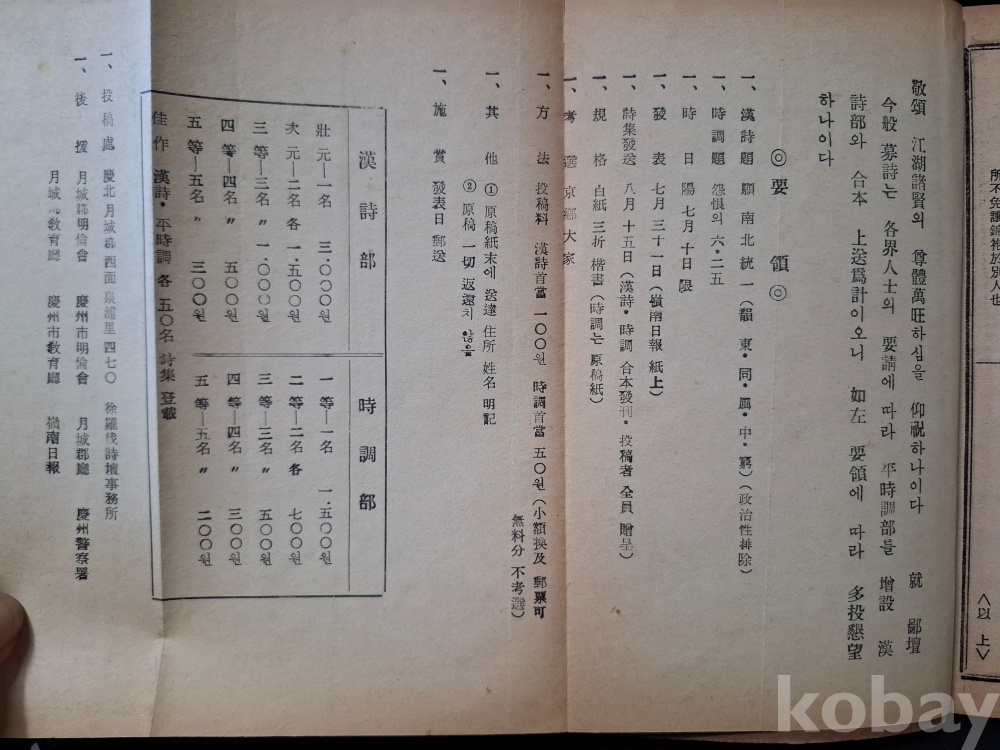 所不免讓錦袍於別人也
<以 上>
敬頌 江湖諸賢의 尊體萬旺하심을 仰祝하나이다 就 鄙壇
今般 募詩는 各界人士의 要請에 따라 平時調部를 增設 漢
詩部와 合本 上送爲計이오니 如左 要領에 따라 多投懇望
하나이다
◎要 領◎
一、漢詩題 願 南北 統 一 (韻 東・同・風・中・窮)(政治性排除)
一、時調題 怨恨의 六・二五
一、時 日 陽 七月 十日 限
一、發 表 七月 三十一日 (嶺南日報 紙上)
詩集發送 八月 十五日 (漢詩・時調 合本發刊・投稿者 全員 贈呈)
一、規 格 白紙 三折 楷書 (時調는 原稿紙)
一、考 選 京鄕大家
一、方 法 投稿料 漢詩首當 一〇〇원 時調首當 五〇원 (小額換及 郵票可
無料分 不考選)
一、其 他 ① 原稿紙末에 送達 住所 姓名 明記
② 原稿 一切 返還치 않음
一、施 賞 發表日 郵送
漢 詩 部
壯元—一名 三・〇〇〇원
次元—二名 各 一・五〇〇원
三等—三名 〃 一・〇〇〇원
四 等—四名 〃 五〇〇원
五 等—五名 〃 三〇〇원
時 調 部
一 等—一名 一・五〇〇원
二 等—二名 各 七〇〇원
三 等—三名 〃 五〇〇원
四 等—四名 〃 三〇〇원
五 等—五名 〃 二〇〇원
佳作 漢詩・平時調 各 五〇名 詩集 登載
一、投 稿 處 慶北 月城郡 西面 泉浦里 四七〇 徐羅伐詩壇事務所
一、後 援 月城郡明倫會 慶州市明倫會 月城郡廳 慶州警察署
月城郡敎育廳 慶州市敎育廳 嶺南日報
kobay